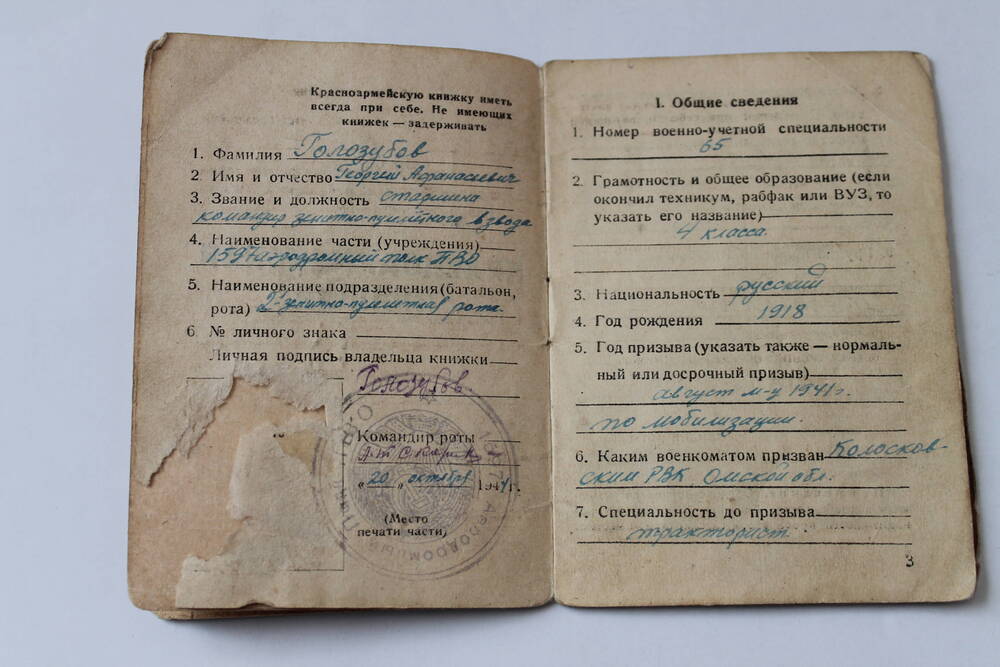 Красноармейскую книжку иметь
всегда при себе. Не имеющих
книжек — задерживать
1. Фамилия Голозубов
2 Имя и отчество Георгий Афанасиевич
3. Звание и должность старшина
командир зенитно-пулеметного взвода
4. Наименование части (учреждения)
1597 аэродромный полк ПВО
5. Наименование подразделения (батальон,
рота) 2-зенитно-пулеметная рота.
6. № личного знака
Личная подпись владельца книжки
Голозубов
Командир роты
„20„ октября 1944г.
(Место
печати части)
1. Общие сведения
1. Номер военно-учетной специальности
65
2. Грамотность и общее образование (если
окончил техникум, рабфак или ВУЗ, то
указать его название)
4 класса.
3. Национальность русский
4. Год рождения 1918
5. Год призыва (указать также — нормаль-
ный или досрочный призыв)
август м-ц 1941г.
по мобилизации.
6. Каким военкоматом призван Колосков-
ским РВК Омской обл.
7. Специальность до призыва
тракторист
3